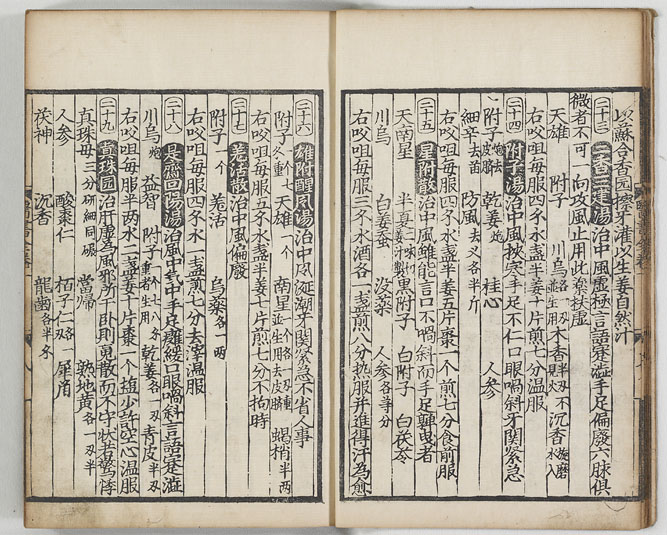 以蘇合香圓擦牙灌以生姜自然汁
二十三 三建湯 治中風虛極言語蹇澁手足偏廢六脉俱
微者不可一向攻風止用此藥扶虛
天雄 附子 川烏各一兩並生用 木香 沉香
右㕮咀每服四錢水二盞姜十片煎七分溫服
二十四 附子湯 治中風挾寒手足不仁口眼喎斜牙關緊急
附子炮去皮臍 乾姜炮 桂心 人參
細辛去苗 防風去叉各半斤
右㕮咀每服四錢水一盞半姜五片棗一個煎七分食前服
二十五 星附散 治中風雖能言口不喎斜而手足嚲曳者
天南星 半夏二味姜汁製 黑附子 白附子 白茯苓
川烏 白姜蚕 沒藥 人參各等分
右㕮咀每服三錢水酒各一盞煎八分热服并進得汗為愈
二十六 雄附醒風湯 治中風涎潮牙關緊急不省人事
附子一個七錢重 天雄一個 南星一個 蝎梢半兩
右㕮咀每服五錢水二盞半姜十片煎七分不拘時
二十七 羗活散 治中風偏廢
附子一個 羗活 烏藥各一兩
右㕮咀每服四錢水一盞煎七分去滓溫服
二十八 回陽湯 治風中氣中手足癱緩口眼喎斜言語蹇澁
川烏炮 益智 附子生用 乾姜各一兩 青皮半兩
右㕮咀每服半兩水二盞姜十片棗一個塩少許空心溫服
二十九 真珠圓 治肝虛為風邪所干卧則魂散而不守狀若驚悸
真珠母三分研細同碾 當歸 熟地黃各一兩半
人參 酸棗仁 栢子仁各一兩 犀角
茯神 沉香 龍齒各半兩